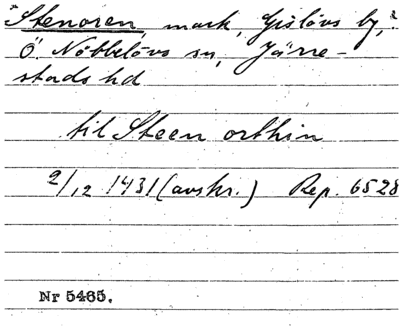 "Stenoren, mark, Gislövs by,
Ö. Nöbbelövs sn, Järre-
stads hd
til Steen orthin
2/12 1431 (avskr.) Rep. 6528
Nr 5465.